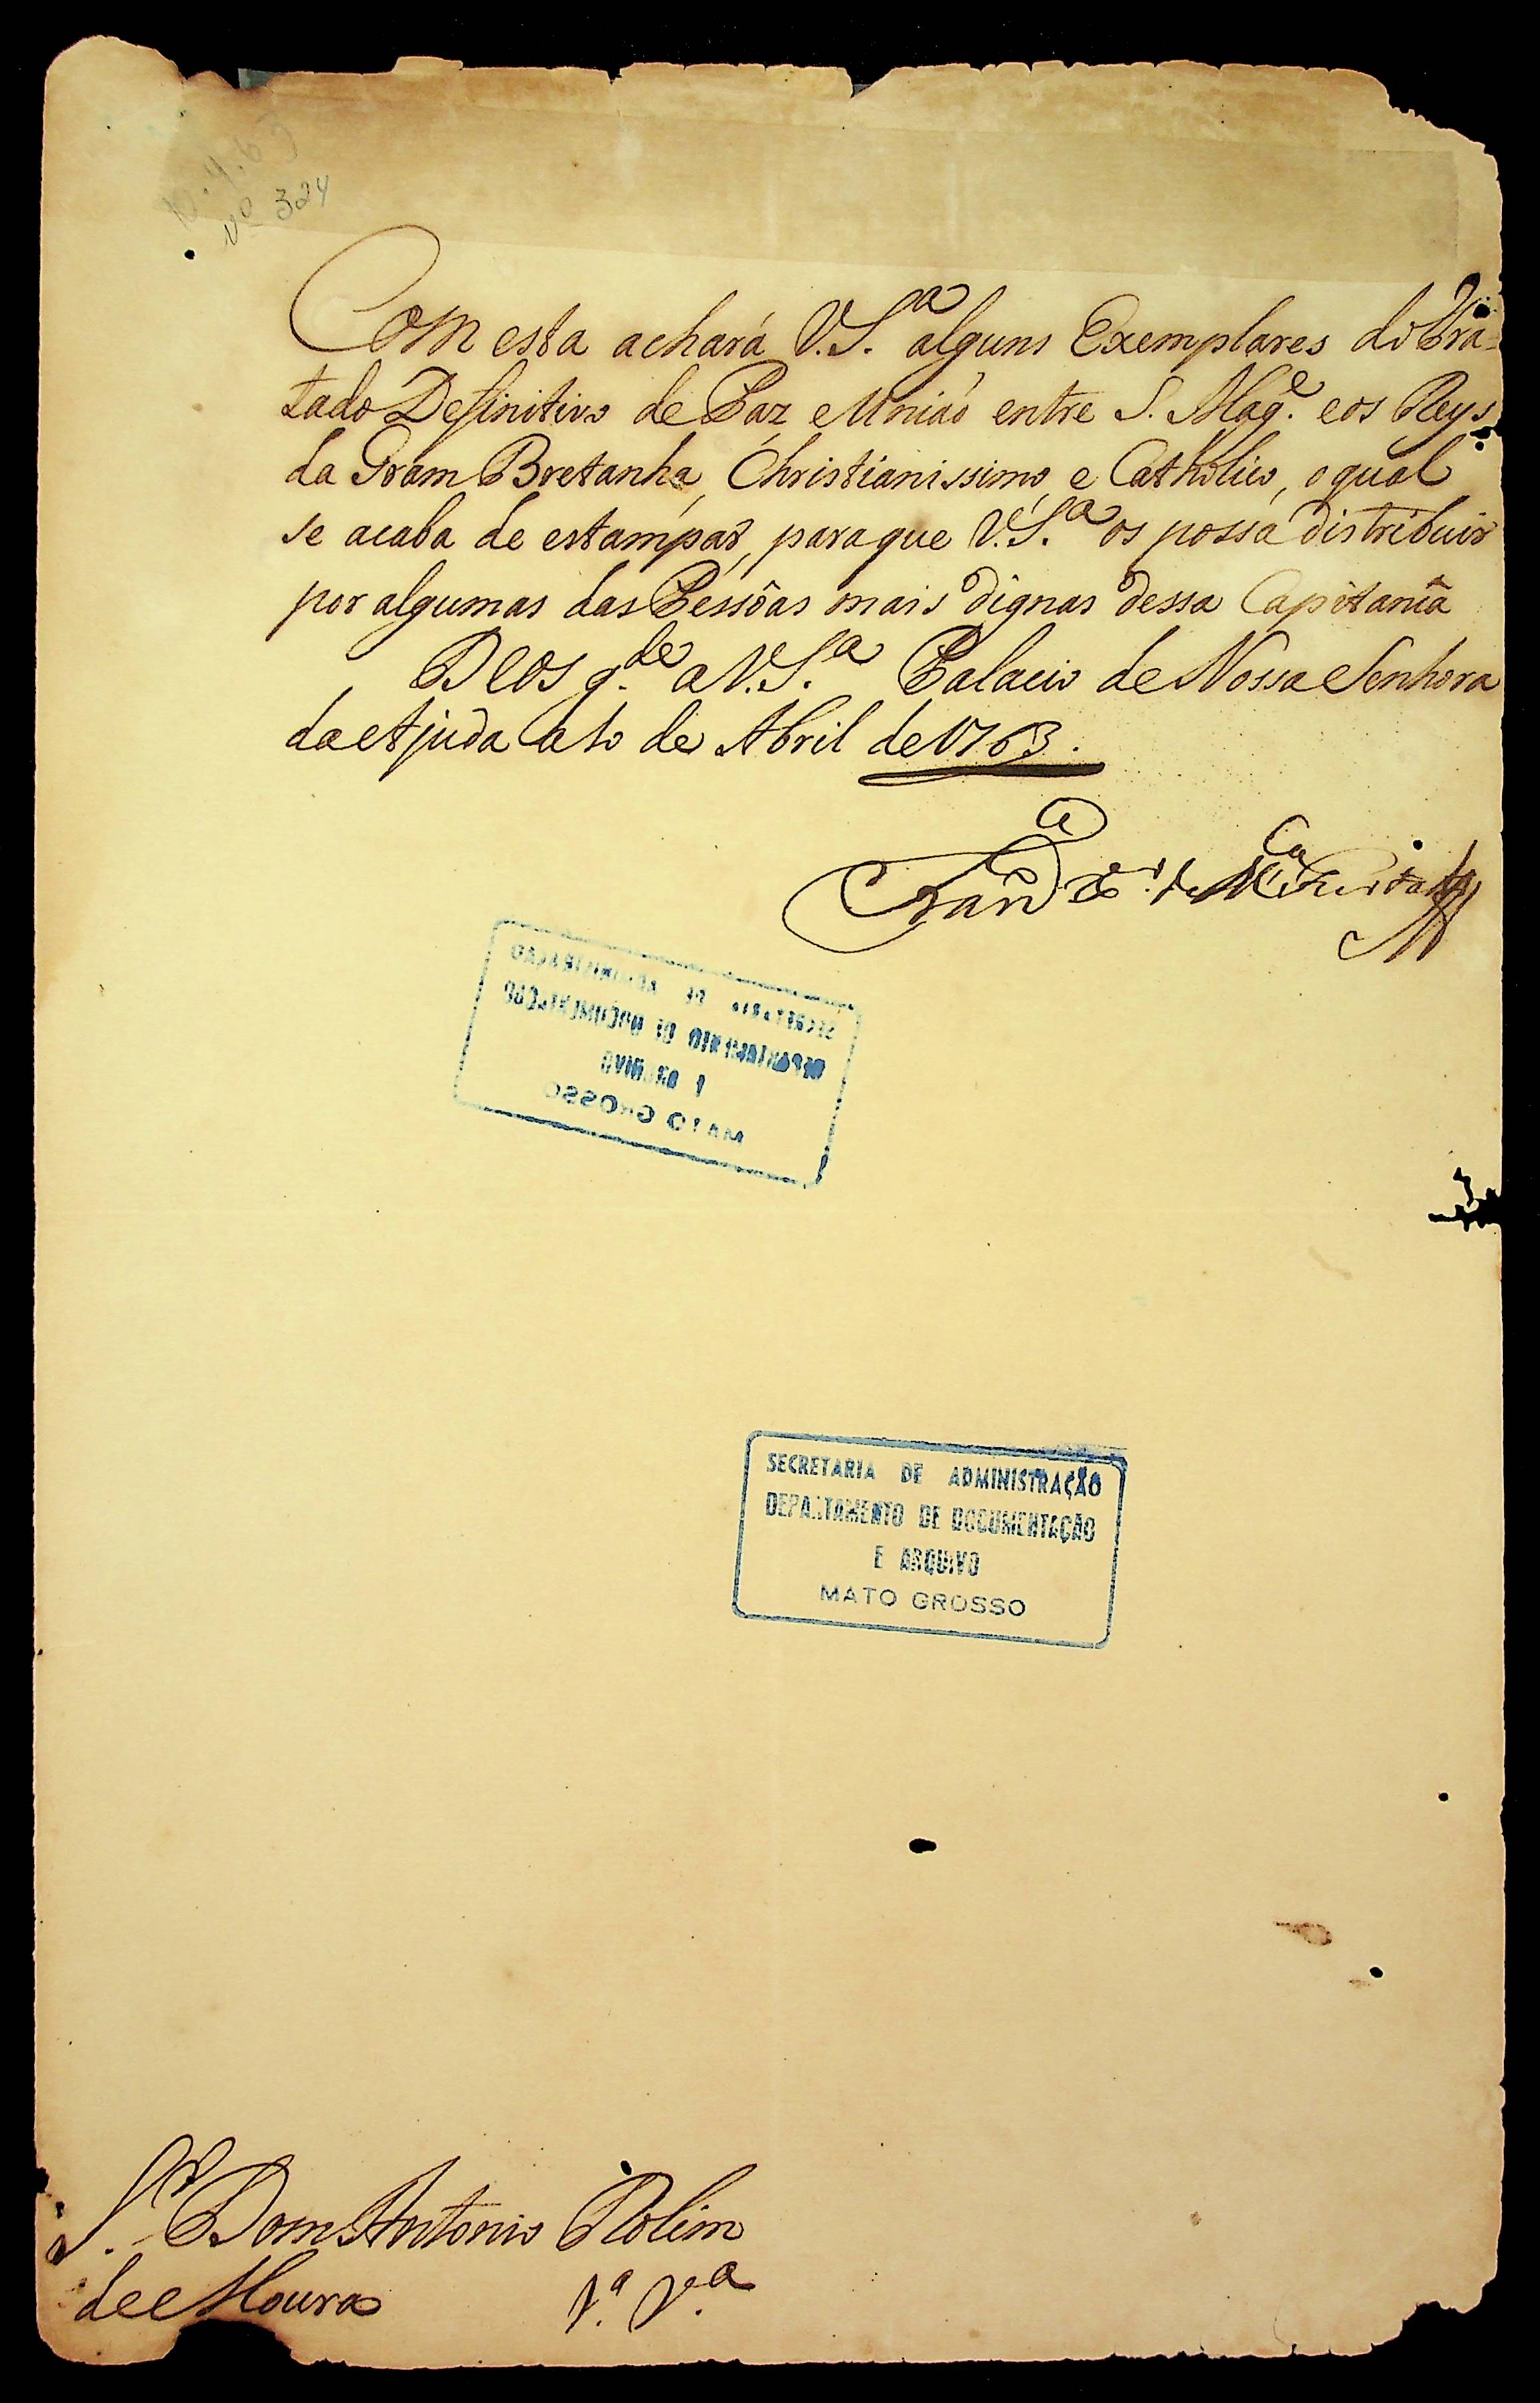 Nº 324
Com esta achará V.S.ª alguns Exemplares do Tra-
tado Definitivo de Paz, e União entre S. Mag.e e os Reys
da Gram Bretanha, Christianissimo, e Catholico, o qual
se acaba de estampar, para que V.S.ª os possa distribuir
por algumas das Pessôas mais dignas dessa Capitania
Deos g.de a V.S.ª Palacio de Nossa Senhora
da Ajuda a 10 de Abril de 1763.
Fran.co X.er de M.ça Furtado
SECRETARIA DE ADMINISTRAÇÃO
DEPARTAMENTO DE DOCUMENTAÇÃO
E ARQUIVO
MATO GROSSO
SECRETARIA DE ADMINISTRAÇÃO
DEPARTAMENTO DE DOCUMENTAÇÃO
E ARQUIVO
MATO GROSSO
S.r Dom Antonio Rolim
de Moura 1.ª V.ª